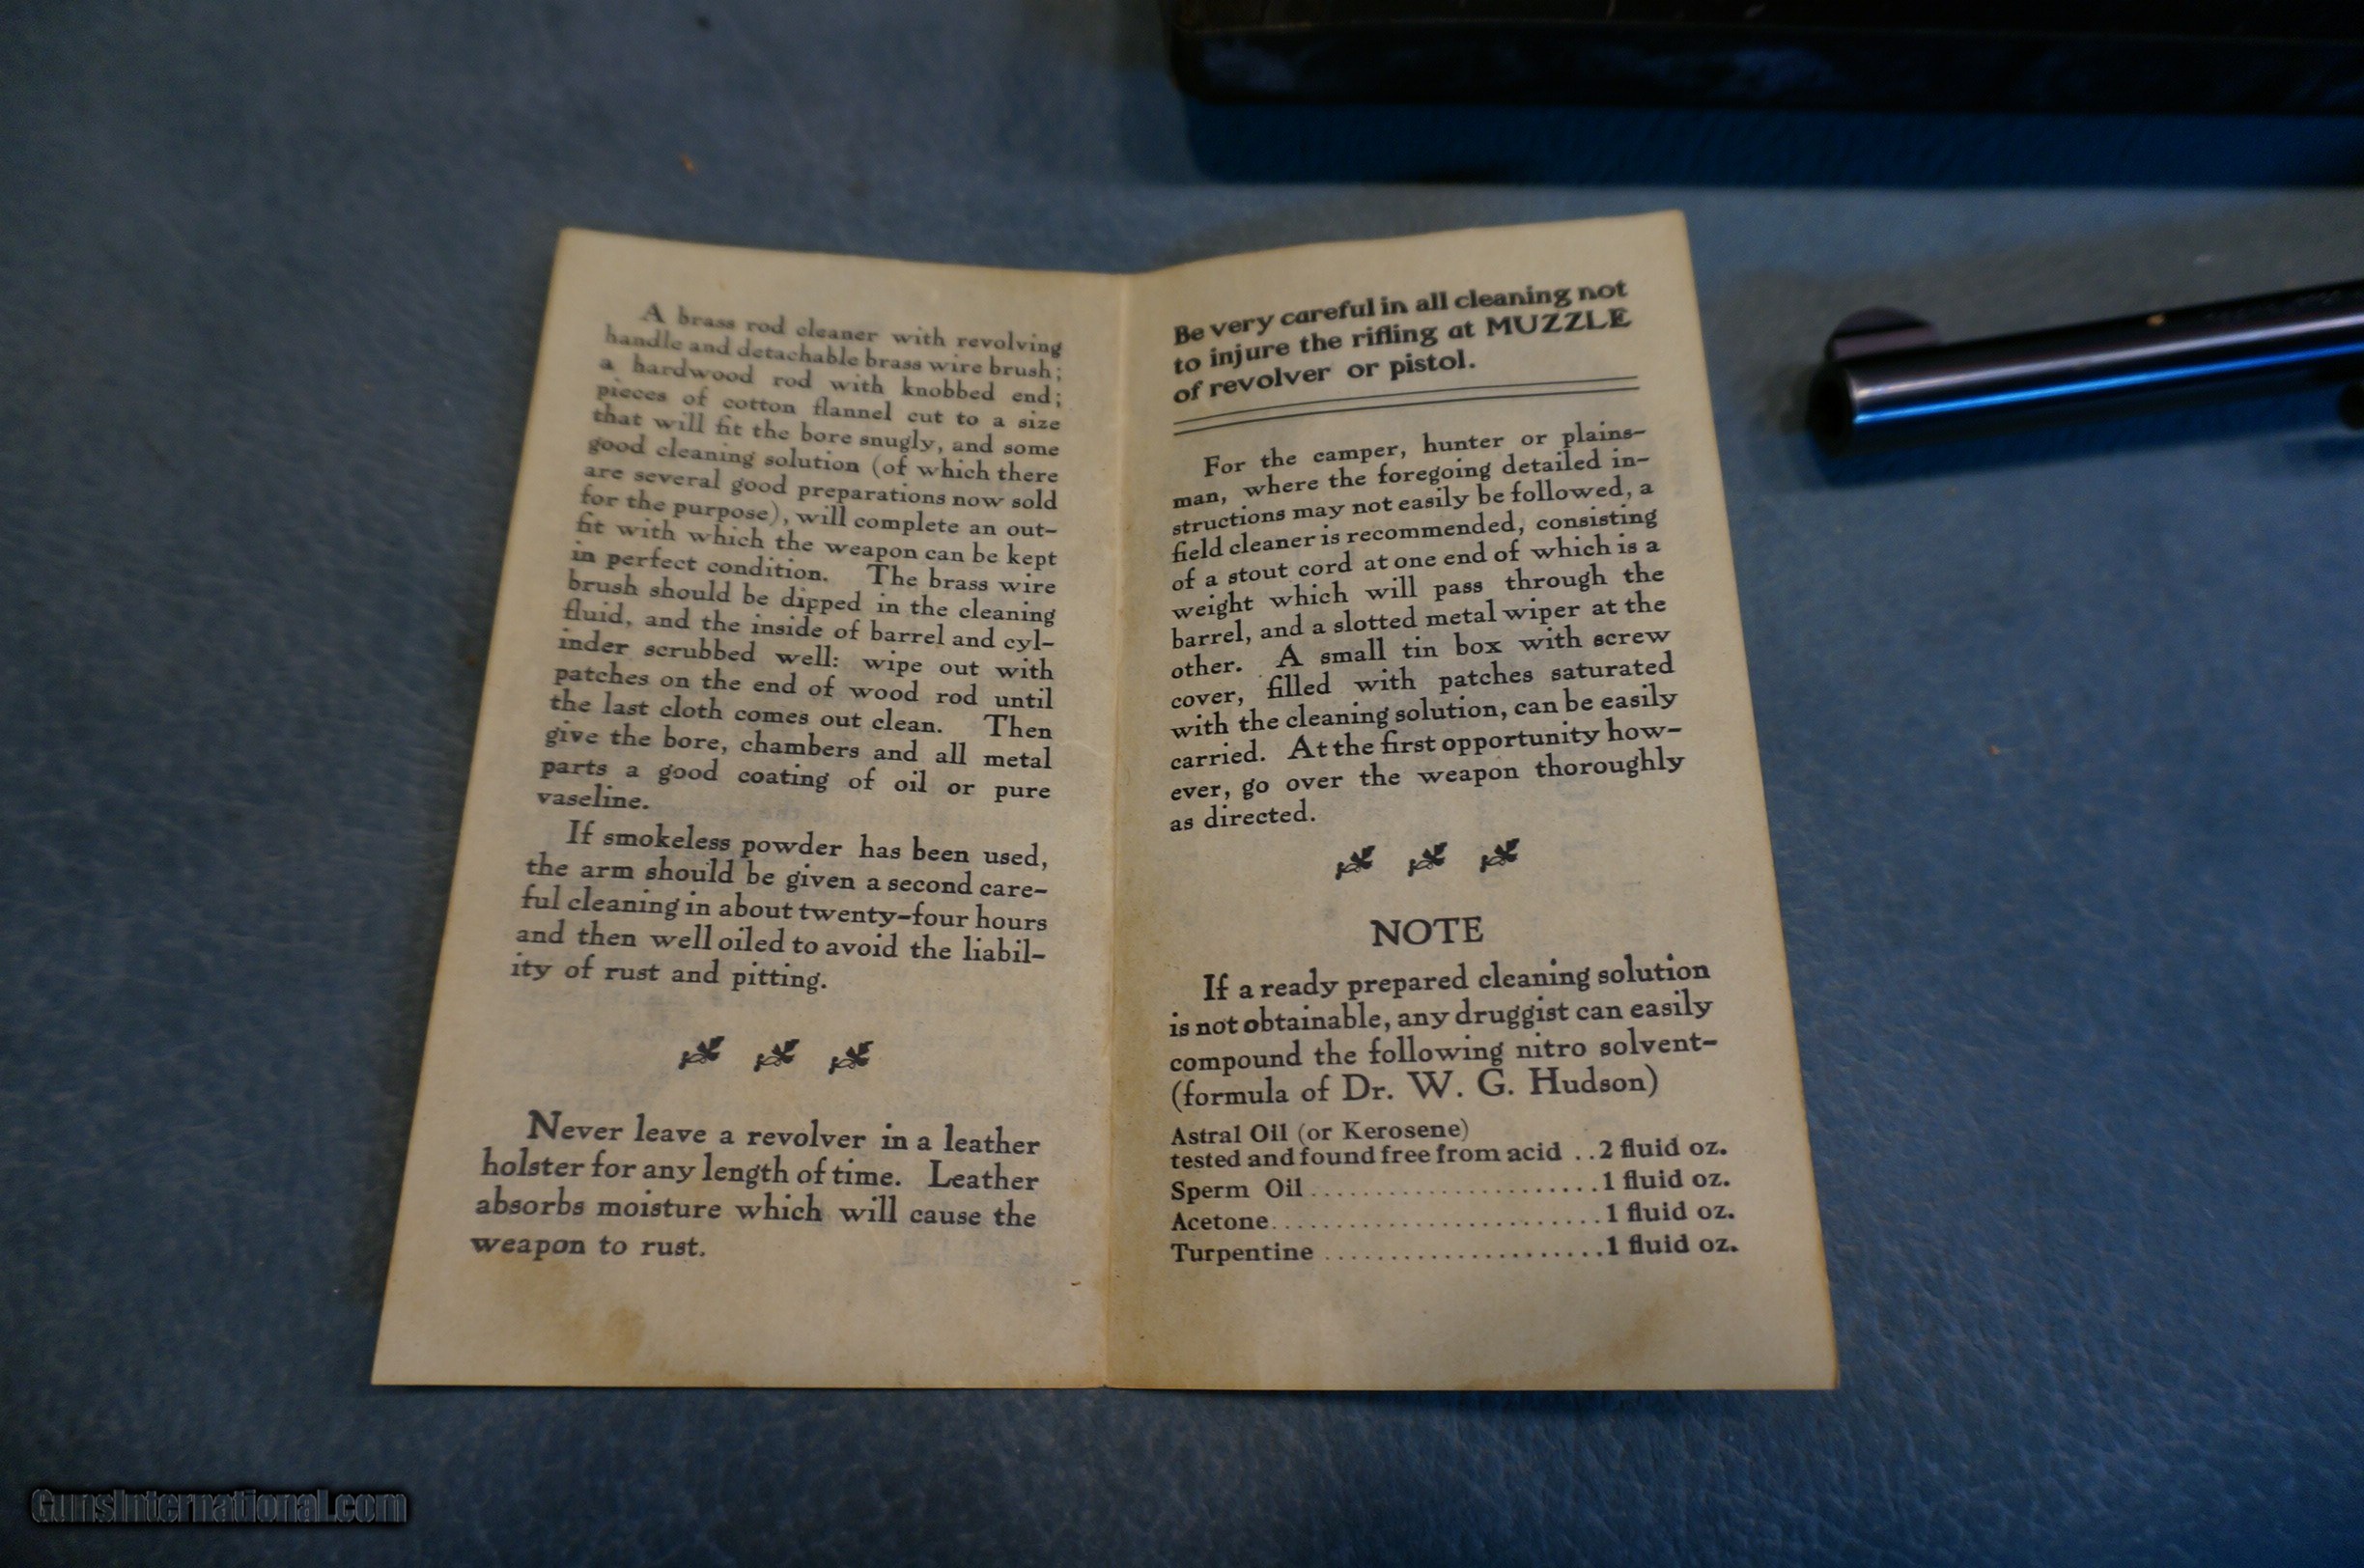 A brass rod cleaner with revolving
handle and detachable brass wire brush;
a hardwood rod with knobbed end;
pieces of cotton flannel cut to a size
that will fit the bore snugly, and some
good cleaning solution (of which there
are several good preparations now sold
for the purpose), will complete an out-
fit with which the weapon can be kept
in perfect condition. The brass wire
brush should be dipped in the cleaning
fluid, and the inside of barrel and cyl-
inder scrubbed well: wipe out with
patches on the end of wood rod until
the last cloth comes out clean. Then
give the bore, chambers and all metal
parts a good coating of oil or pure
vaseline.
If smokeless powder has been used,
the arm should be given a second care-
ful cleaning in about twenty-four hours
and then well oiled to avoid the liabil-
ity of rust and pitting.
Never leave a revolver in a leather
holster for any length of time. Leather
absorbs moisture which will cause the
weapon to rust.
Be very careful in all cleaning not
to injure the rifling at MUZZLE
of revolver or pistol.
For the camper, hunter or plains-
man, where the foregoing detailed in-
structions may not easily be followed, a
field cleaner is recommended, consisting
of a stout cord at one end of which is a
weight which will pass through the
barrel, and a slotted metal wiper at the
other. A small tin box with screw
cover, filled with patches saturated
with the cleaning solution, can be easily
carried. At the first opportunity how-
ever, go over the weapon thoroughly
as directed.
NOTE
If a ready prepared cleaning solution
is not obtainable, any druggist can easily
compound the following nitro solvent-
(formula of Dr. W. G. Hudson)
Astral Oil (or Kerosene)
tested and found free from acid ..2 fluid oz.
Sperm Oil......................1 fluid oz.
Acetone.........................1 fluid oz.
Turpentine ......................1 fluid oz.
GunsInternational.com